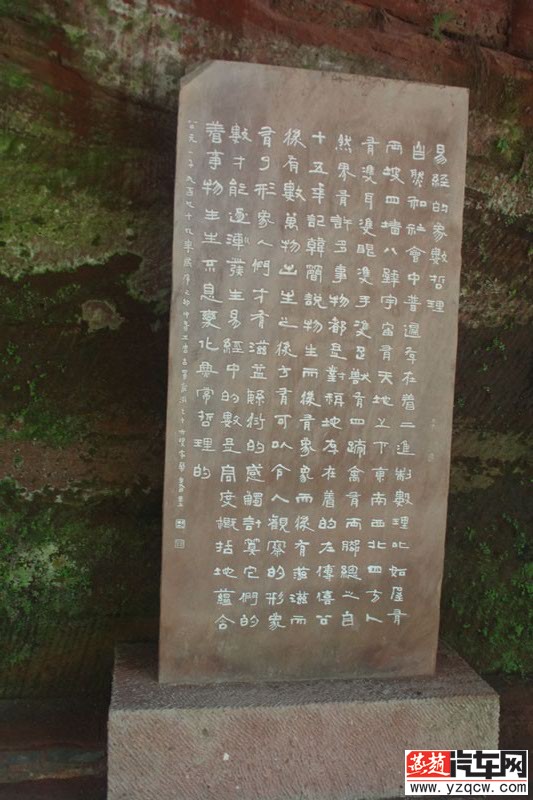 易經的象數哲理
自然和社會中普遍存在着二進制數理比如屋有
兩坡四墻八宇宙有天地上下東南西北四方人
有雙耳雙眼雙手雙足獸有四蹄禽有兩腳總之自
然界有許多事物都是對稱地存在着的左傳僖公
十五年記韓簡說物生而後有象象而後有滋滋而
後有數萬物出生之後才有可以令人觀察的形象
有了形象人們才有滋益的感觸計算它們的
數才能逐漸發生易經中的數是高度概括地蘊含
着事物生生不息變化無常哲理的
一千九百九十九年
燕趙汽车网
www.yzqcw.com